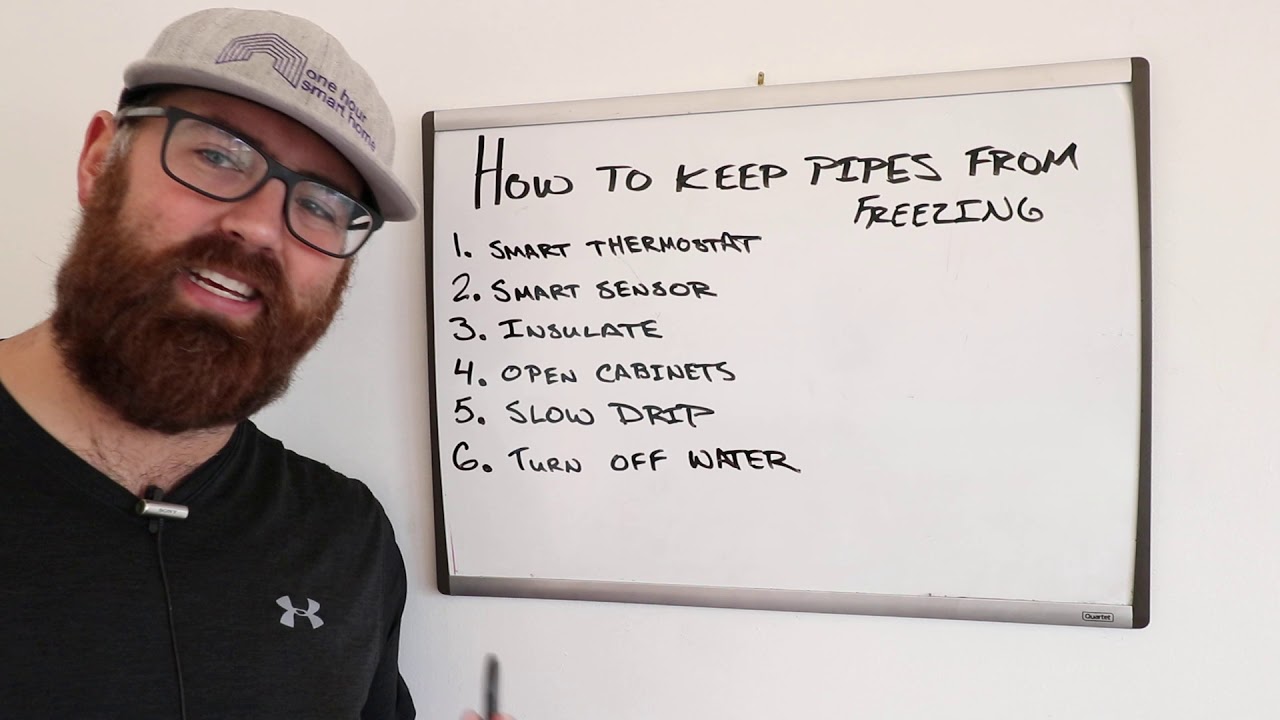 one hour
smart home
HOW TO KEEP PIPES FROM
FREEZING
1. SMART THERMOSTAT
2. SMART SENSOR
3. INSULATE
4. OPEN CABINETS
5. SLOW DRIP
6. TURN OFF WATER
SONY
Quartet